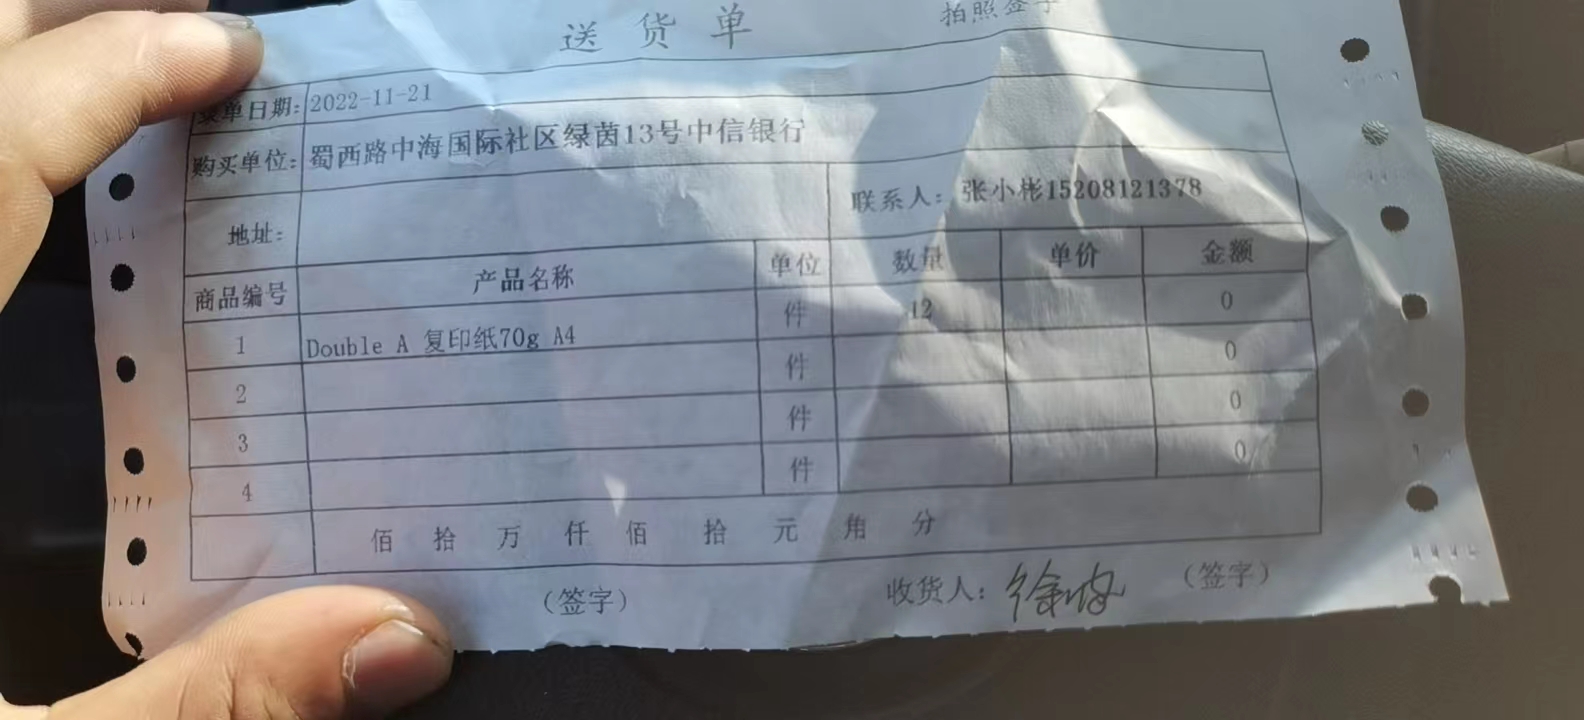 送货单
拍照签字
录单日期: 2022-11-21
购买单位: 蜀西路中海国际社区绿茵13号中信银行
地址:
联系人: 张小彬15208121378
商品编号 产品名称 单位 数量 单价 金额
1 Double A 复印纸70g A4 件 12 0
2 件 0
3 件 0
4 件 0
佰 拾 万 仟 佰 拾 元 角 分
(签字) 收货人: (签字)